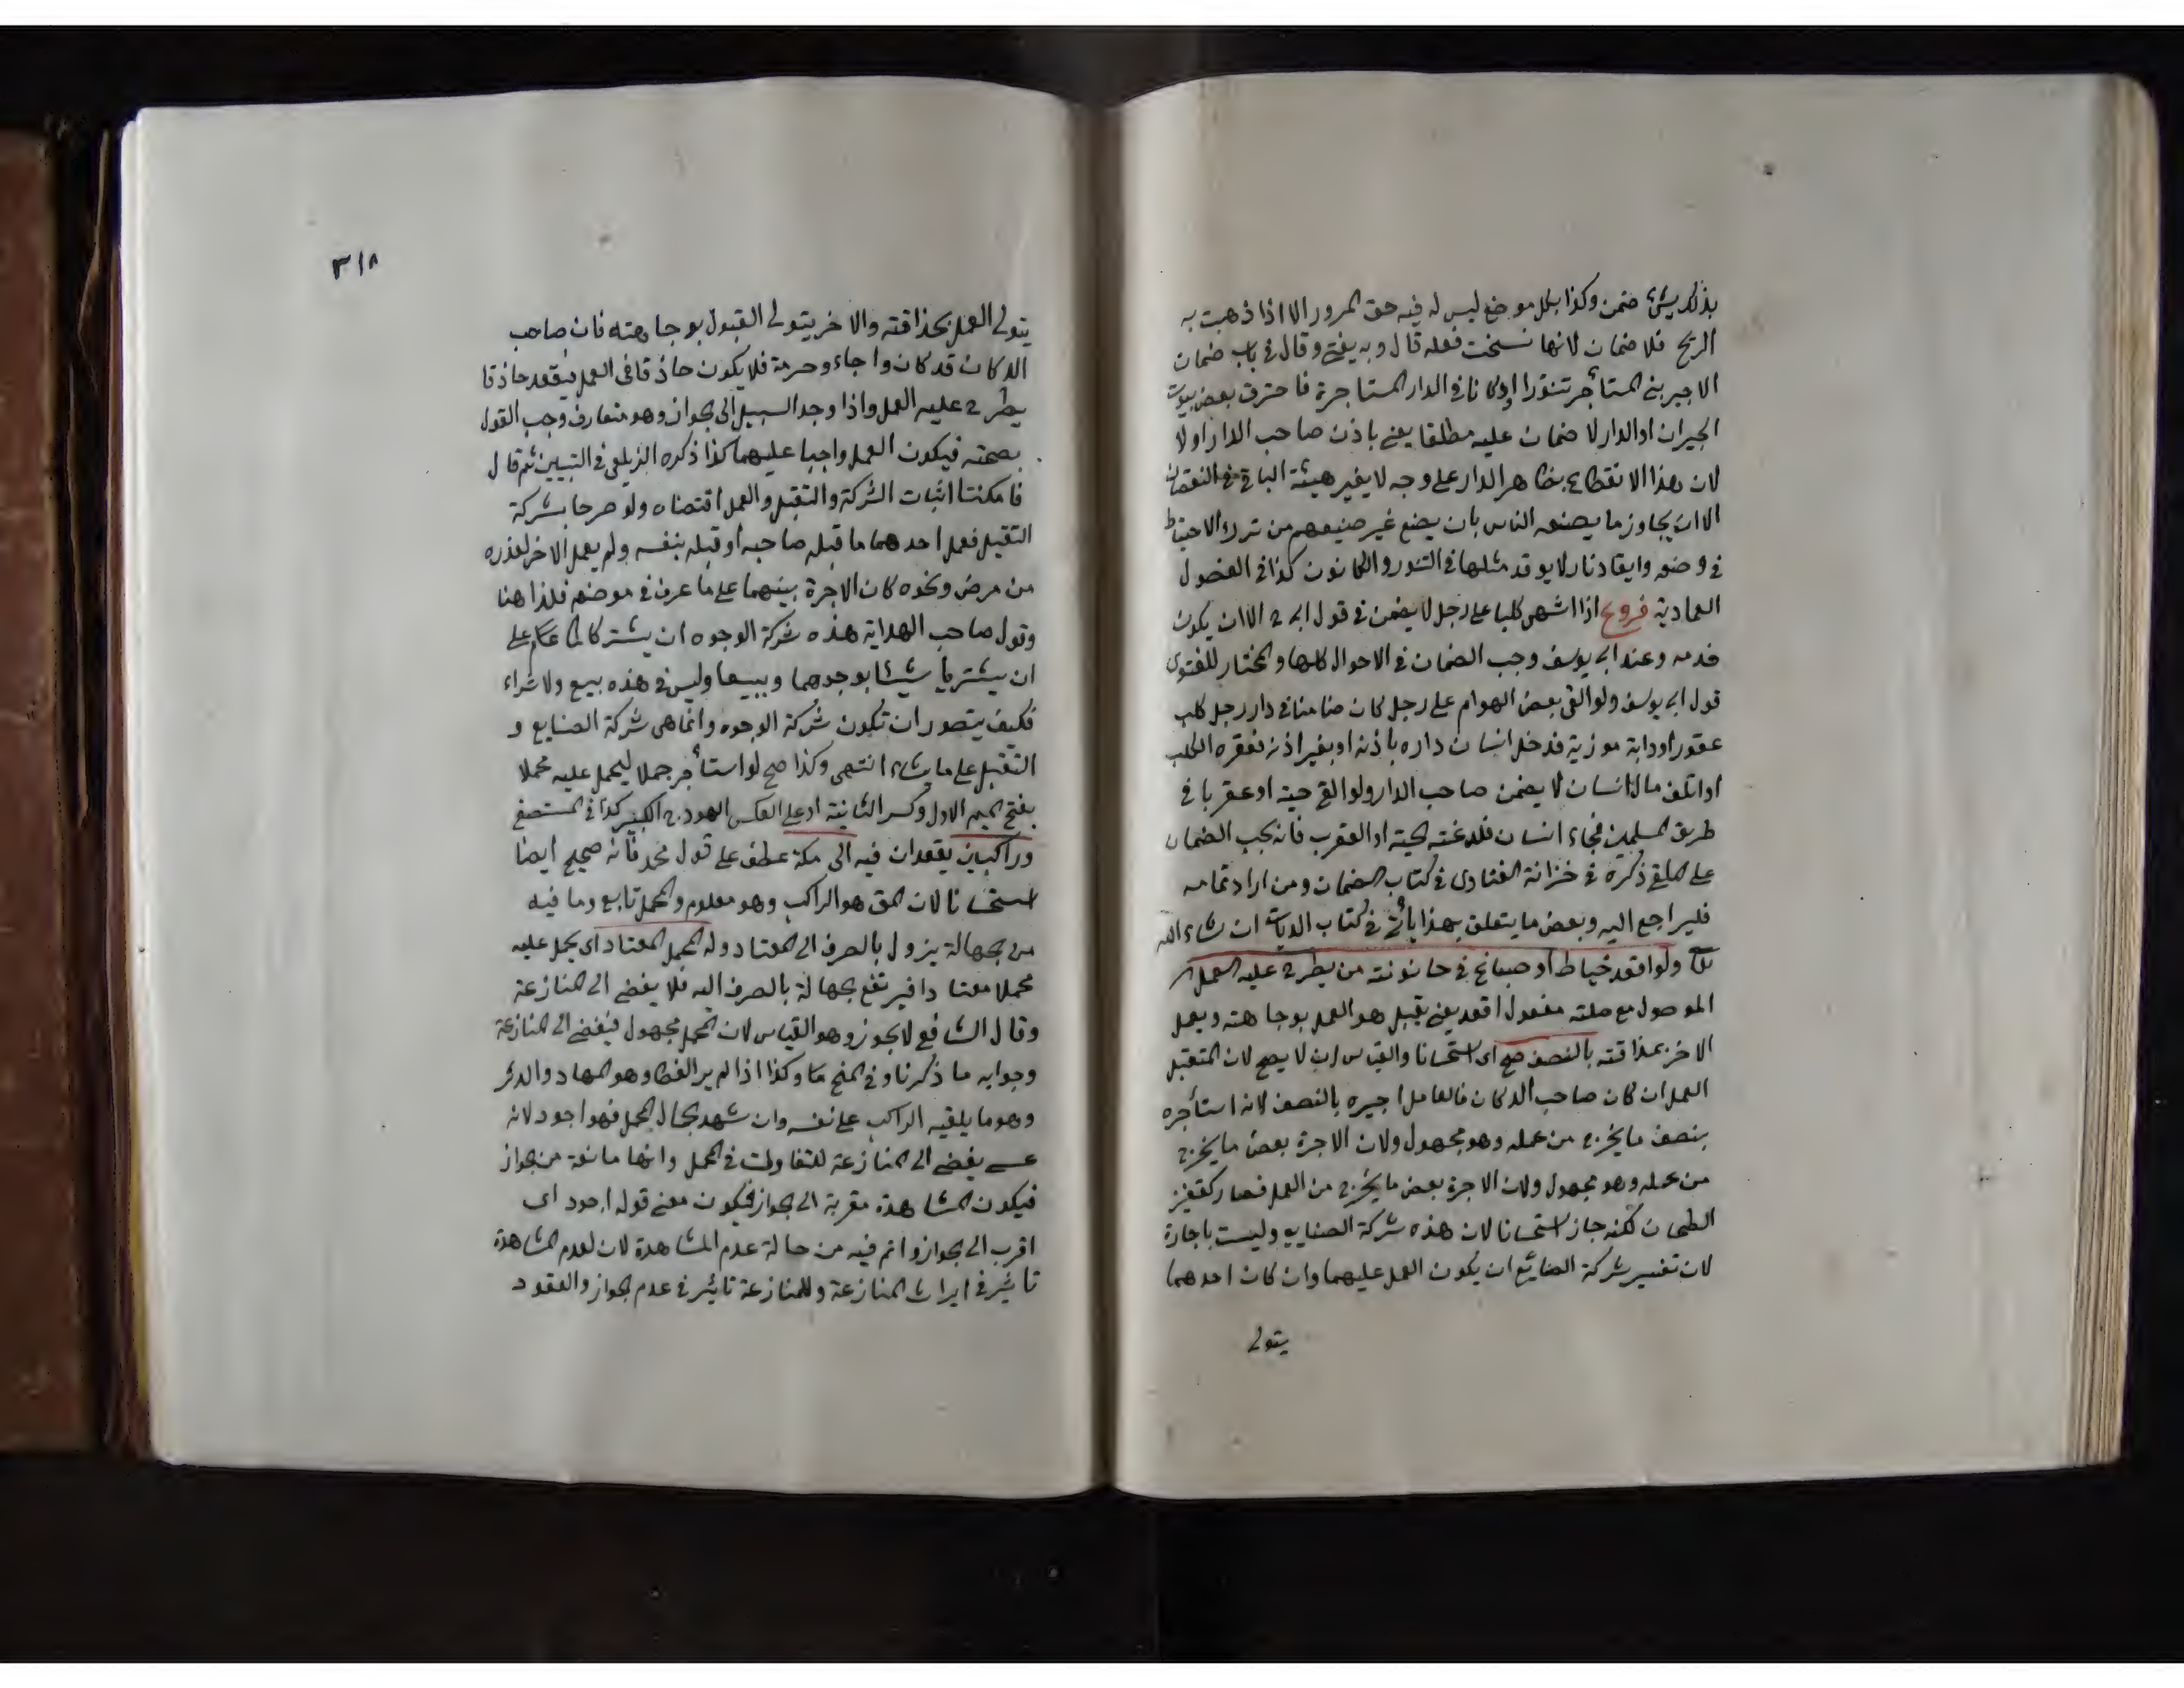 بذلك شئ ضمن وكذا بكل موضع ليس له فيه حق المرور الا اذا ذهبت به
الريح فلا ضمان لانها نسخت فعله قال وبه يفتى وقال فى باب ضمان
الاجير بنى المستأجر تنورا اوكانا فى الدار المستاجرة فاحترق بعض بيوت
الجيران او الدار لا ضمان عليه مطلقا يعنى باذن صاحب الدار او لا
لان هذا الانتفاع بظاهر الدار على وجه لا يغير هيئة الباقى النقصان
الا ان يجاوز ما يصنعه الناس بان يصنع غير صنيعهم من ترك الاحتياط
فى وضعه وايقاد نار لا يوقد مثلها فى التنور والكانون كذا فى الفصول
العمادية فروع اذا اشهى كلبا على رجل لا يضمن فى قول ابى ح الا ان يكون
قدمه وعند ابى يوسف وجب الضمان فى الاحوال كلها والمختار للفتوى
قول ابى يوسف ولو القى بعض الهوام على رجل كان ضامنا فى دار رجل كلب
عقور او دابة موزية فدخل انسان داره باذنه او بغير اذنه فعقره الكلب
او اتلف مال انسان لا يضمن صاحب الدار ولو القى حية او عقربا فى
طريق المسلمين فجاء انسان فلدغته الحية او العقرب فانه يجب الضمان
على الملقى ذكره فى خزانة الفتاوى فى كتاب الضمان ومن اراد تمامه
فليراجع اليه وبعض ما يتعلق بهذا يأتى فى كتاب الديات ان شاء الله
تعا ولو اقعد خياط او صباغ فى حانوته من يطرح عليه العمل
الموصول مع صلته مفعول اقعد يعنى يقبل هو العمل بوجاهته ويعمل
الاخر بحذاقته بالنصف صح اى استحسانا والقياس ان لا يصح لان المتقبل
العمل ان كان صاحب الدكان فالعامل اجيره بالنصف لانه استأجره
بنصف ما يخرج من عمله وهو مجهول ولان الاجرة بعض ما يخرج
من عمله وهو مجهول ولان الاجرة بعض ما يخرج من العمل فصار كقفيز
الطحان لكنه جاز استحسانا لان هذه شركة الصنايع وليست باجارة
لان تفسير شركة الصنائع ان يكون العمل عليهما وان كان احدهما
يتولى
٣١٨
يتولى العمل بحذاقته والاخر يتولى القبول بوجاهته فان صاحب
الدكان قد كان واجاء وحرمة فلا يكون حاذقا فى العمل فيقعد حاذقا
يطرح عليه العمل واذا وجد السبيل الى الجواز وهو متعارف وجب القول
بصحته فيكون العمل واجبا عليهما كذا ذكره الزيلعى فى التبيين ثم قال
فامكننا اثبات الشركة والتقبل والعمل اقتضاه ولو صرحا بشركة
التقبل فعمل احدهما ما قبله صاحبه او قبله بنفسه ولم يعمل الاخر لعذره
من مرض ونحوه كان الاجرة بينهما على ما عرف فى موضعه فلذا هنا
وقول صاحب الهداية هذه شركة الوجوه ان يشتركا على
ان يشتريا شيئا بوجههما ويبيعا وليس فى هذه بيع ولا شراء
فكيف يتصور ان تكون شركة الوجوه وانما هى شركة الصنايع و
التقبل على ما شاء انتهى وكذا صح لو استأجر جملا ليحمل عليه محملا
بفتح الميم الاول وكسر الثانية او على العكس الهودج الكبير كذا فى المستصفى
وراكبان يقعدان فيه الى مكة عطف على قول محمد فانه صحيح ايضا
استحسانا لان المق هو الراكب وهو معلوم والمحمل تابع وما فيه
من الجهالة يزول بالصرف الى المعتاد وله المحمل المعتاد اى يحمل عليه
محملا معتادا فيرتفع الجهالة بالصرف اليه فلا يفضى الى المنازعة
وقال الشافعى لا يجوز وهو القياس لان المحمل مجهول فيفضى الى المنازعة
وجوابه ما ذكرنا وفى المنح وكذا اذا لم ير الغطا وهو المهاد والدثر
وهو ما يلقيه الراكب على نفسه وان شهد الجمال المحمل فهو اجود لانه
عسى يفضى الى المنازعة للتفاوت فى المحمل وانها مانعة من الجواز
فيكون المشاهدة مقربة الى الجواز فيكون معنى قوله اجود اى
اقرب الى الجواز واتم فيه من حالة عدم المشاهدة لان لعدم المشاهدة
تاثير فى ايراث المنازعة وللمنازعة تاثير فى عدم الجواز والعقود